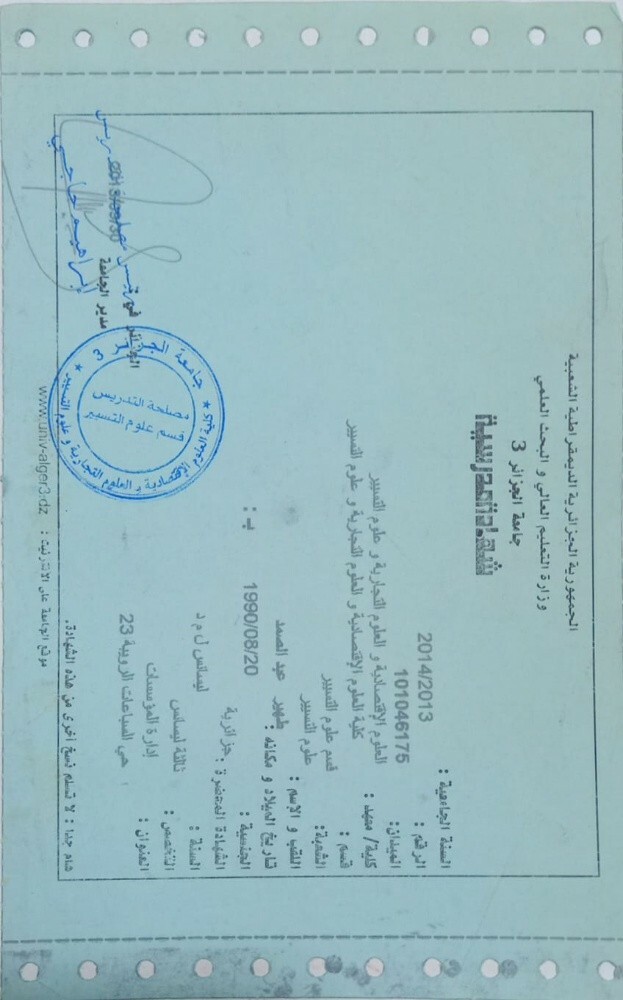 الجمهورية الجزائرية الديمقراطية الشعبية
وزارة التعليم العالي و البحث العلمي
جامعة الجزائر 3
شهادة مدرسية
السنة الجامعية : 2014/2013
الرقم : 101046175
الميدان: العلوم الإقتصادية و العلوم التجارية و علوم التسيير
كلية/ معهد : كلية العلوم الإقتصادية و العلوم التجارية و علوم التسيير
قسم : قسم علوم التسيير
الشعبة: علوم التسيير
اللقب و الإسم : طهير عبد الصمد
تاريخ الميلاد و مكانه : 1990/08/20 بـ :
الجنسية : جزائرية
الشهادة المحضرة : ليسانس ل م د
السنة : ثالثة ليسانس
التخصص : إدارة المؤسسات
العنوان : حي السباعات الرويبة 23
الجزائر في
مدير الجامعة
إبراهيم
جامعة الجزائر 3
كلية العلوم الإقتصادية و العلوم التجارية و علوم التسيير
مصلحة التدريس
قسم علوم التسيير
هام جدا : لا تسلم نسخ أخرى من هذه الشهادة.
موقع الجامعة على الانترنيت : www.univ-alger3.dz